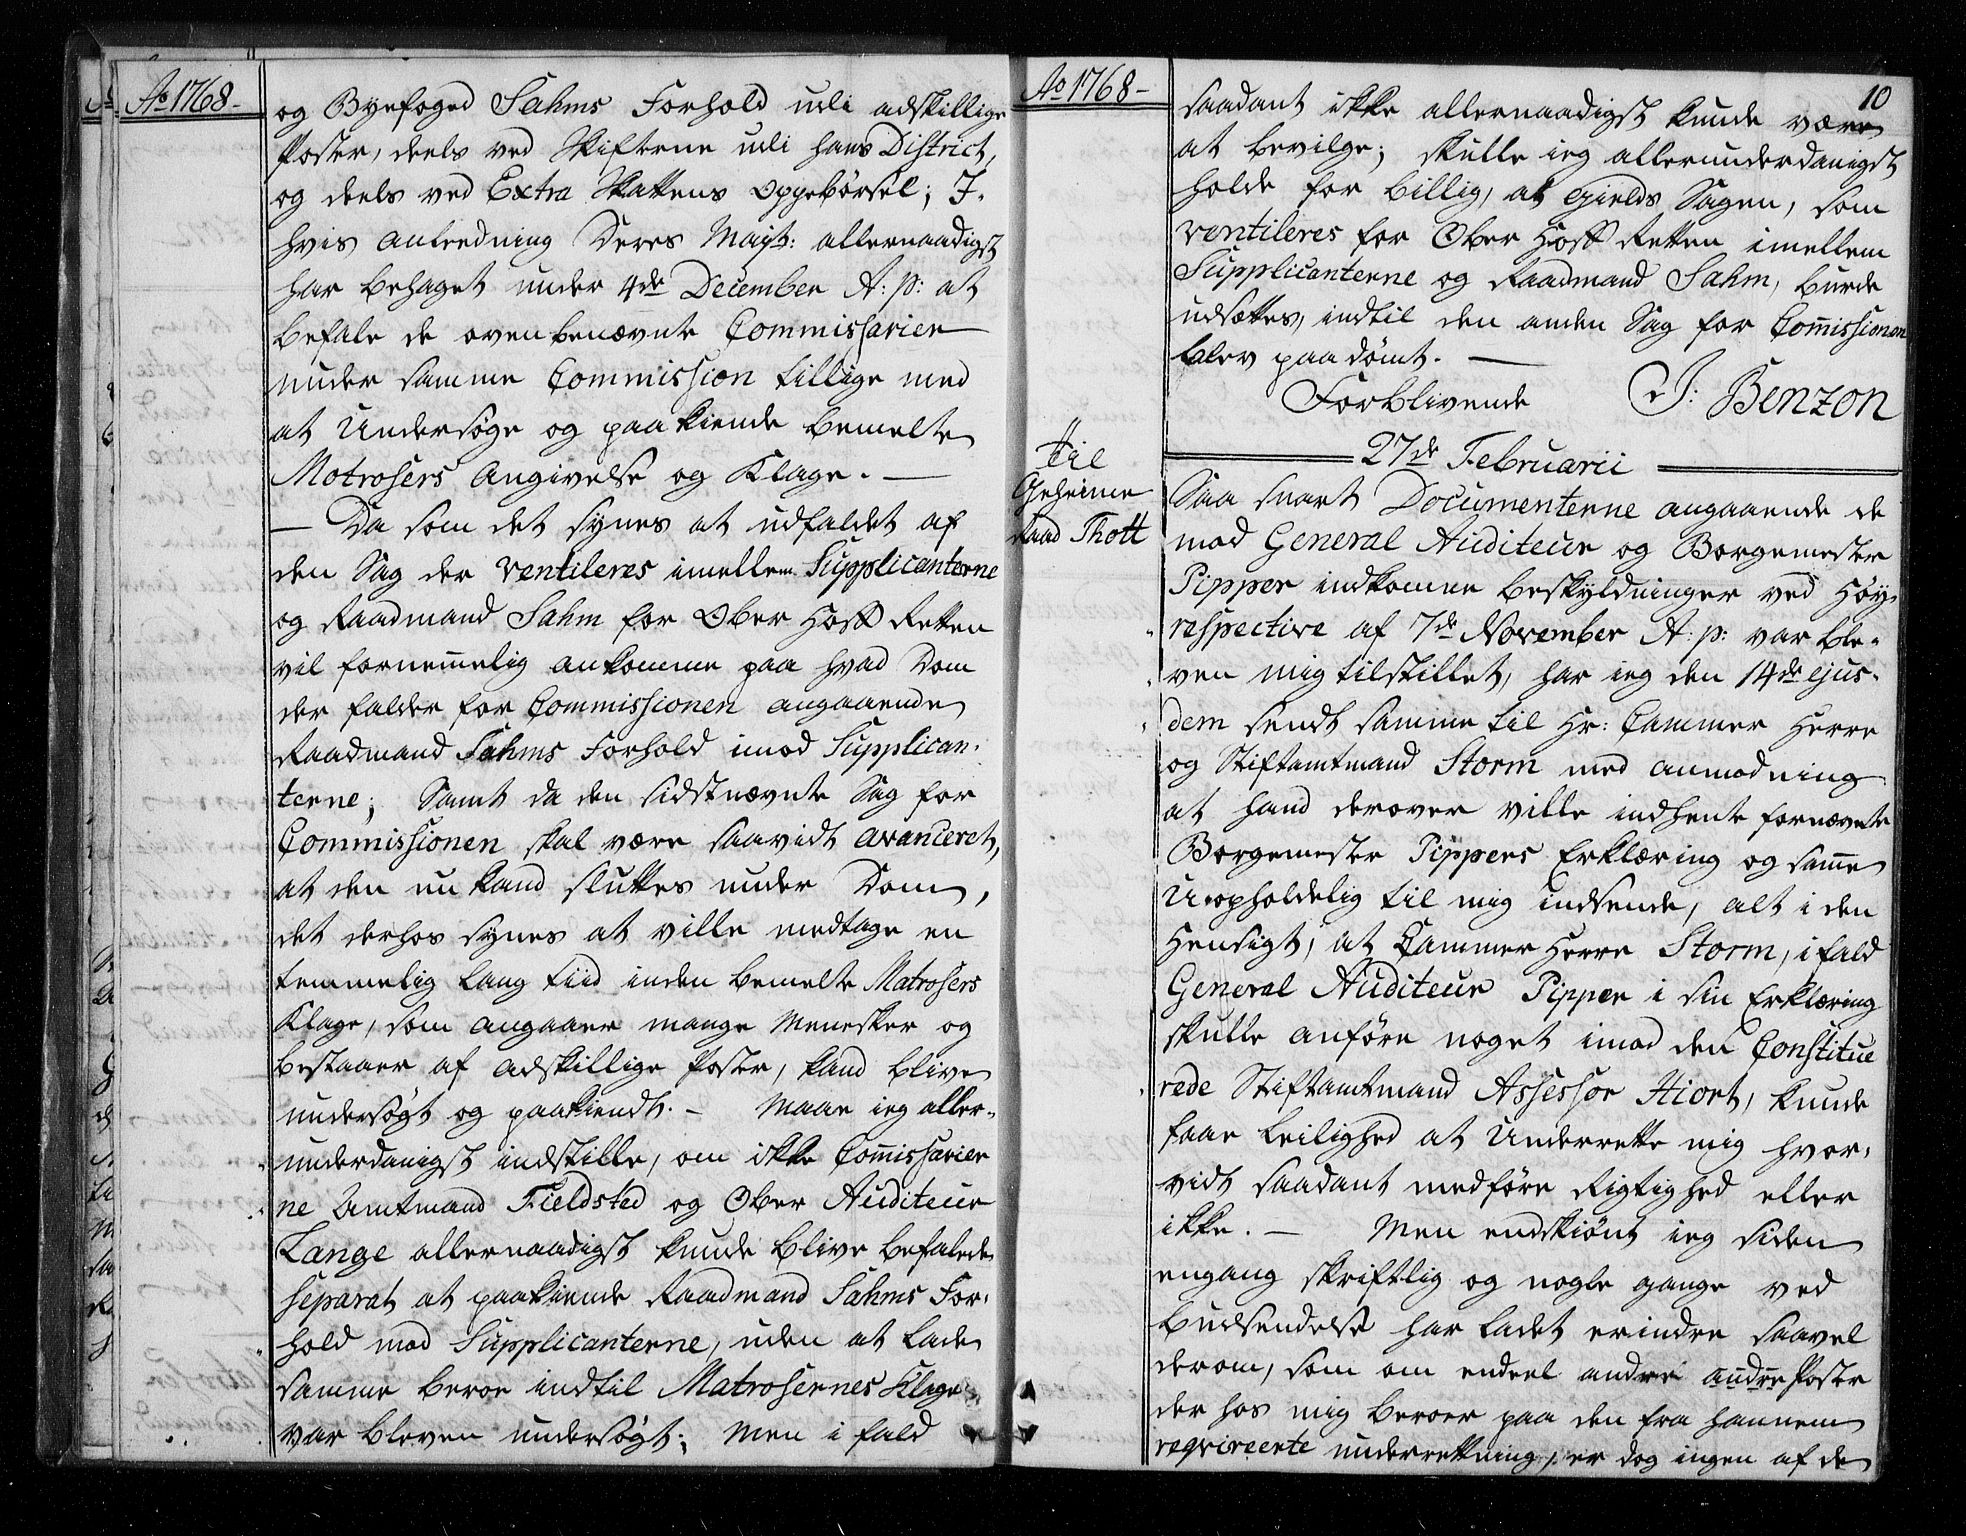 Ao 1768-
og Byefoged Sahms Forhold udi adskillige
Poster, deels ved Skifterne udi hans District,
og deels ved Extra Skattens Oppebørsel; I-
hvis Anledning Deres Mayt: allernaadigst
har behaget under 4de December A: p: at
befale de ovenbenævnte Commissarier
under samme Commission tillige med
at Undersøge og paakiende bemelte
Motrosers Angivelse og Klage. —
— Da som det synes at udfaldet af
den Sag der ventileres imellem Supplicanterne
og Raadmand Sahm for Ober Hoff Retten
vil fornemelig ankomme paa hvad Dom
der falder for Commissionen angaaende
Raadmand Sahms Forhold imod Supplican-
terne; Samt da den sidstnævnte Sag for
Commissionen skal være saavidt avanceret,
at den nu kand sluttes under Dom,
det derhos synes at ville medtage en
temmelig lang tiid inden bemelte Matrosers
Klage, som angaaer mange Menesker og
bestaaer af adskillige Poster, kand blive
undersøgt og paakiendt. — Maae ieg aller-
underdanigst indstille, om ikke Comissarier
ne Amtmand Fieldsted og Ober Auditeur
Lange allernaadigst kunde blive befalede
separat at paakiende Raadmand Sahms For-
hold mod Supplicanterne, uden at lade
samme beroe indtil Matrosernes Klage
var bleven undersøgt; Men i fald
Ao 1768-
10
saadant ikke allernaadigst kunde være
at bevilge; skulle ieg allerunderdanigst
holde for billig, at Gields Sagen, som
ventileres for Ober Hoff Retten imellem
Supplicanterne og Raadmand Sahm, burde
udsættes, indtil den anden Sag for Comissionen
blev paadømt. —
Forblivende J: Benzon
27de Februarii
Til
Geheime
Raad Thott
Saa snart Documenterne angaaende de
mod General Auditeur og Borgemester
Pipper indkomne beskyldninger ved Høy-
respective af 7de November A: p: var ble-
ven mig tilstillet, har ieg den 14de ejus-
dem sendt samme til Hr: Cammer Herre
og Stiftamtmand Storm med anmodning
at hand derover ville indhente fornævnte
Borgemester Pippers Erklæring og same
Uopholdelig til mig indsende, alt i den
Hensigt, at Cammer Herre Storm, ifald
General Auditeur Pipper i sin Erklæring
skulle anføre noget imod den Constitue
rede Stiftamtmand Assessor Hiort, kunde
faae Leilighed at Underrette mig hvor-
vidt saadant medføre Rigtighed eller
ikke. — Men endskiønt ieg siden
engang skriftlig og nogle gange ved
Budsendelse har ladet erindre saavel
derom, som om endeel andre andre Poster
der hos mig beroer paa den fra hannem
reqvireerte underretning, er dog ingen af de